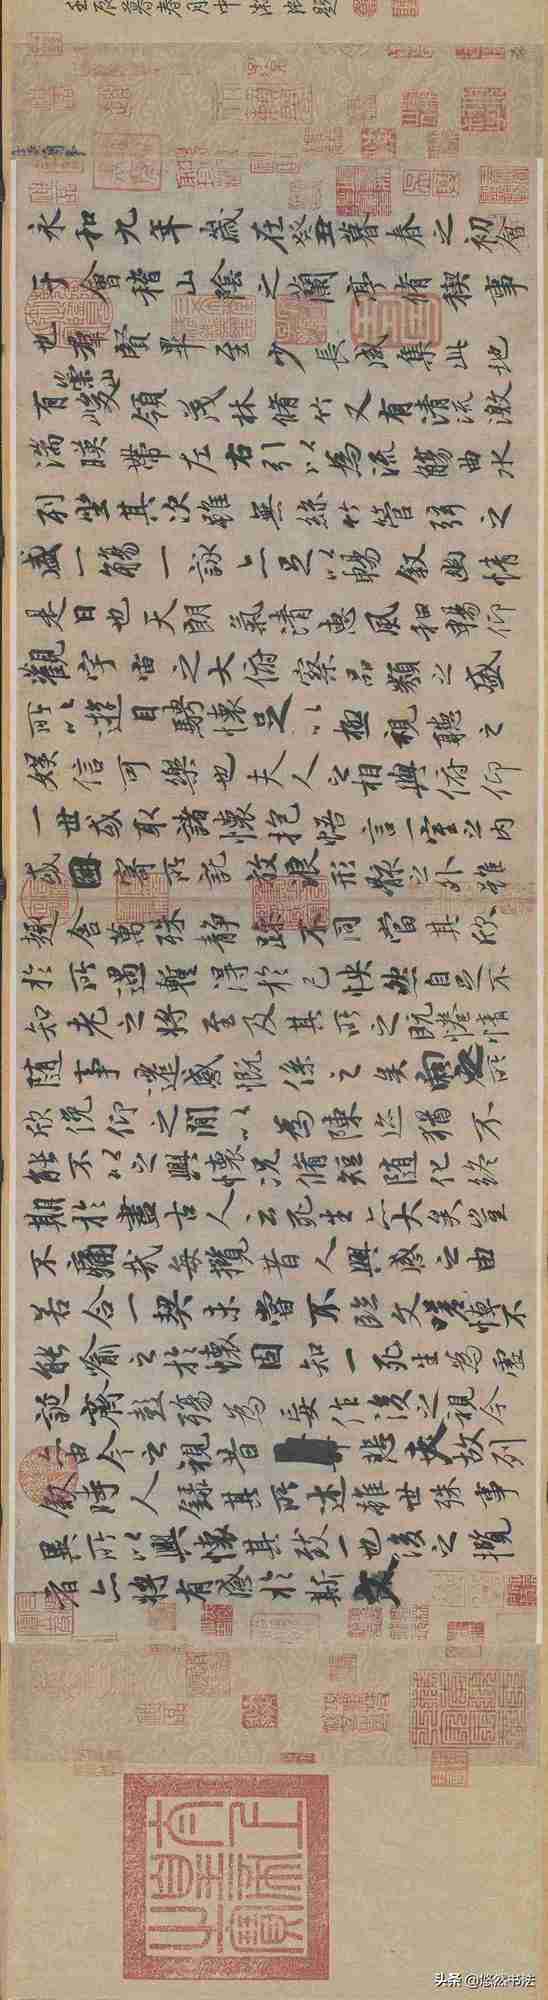 永和九年歲在癸丑暮春之初會
于會稽山陰之蘭亭脩稧事
也羣賢畢至少長咸集此地
有崇山峻領茂林脩竹又有清流激
湍暎帶左右引以為流觴曲水
列坐其次雖無絲竹管弦之
盛一觴一詠亦足以暢敘幽情
是日也天朗氣清惠風和暢仰
觀宇宙之大俯察品類之盛
所以遊目騁懷足以極視聽之
娛信可樂也夫人之相與俯仰
一世或取諸懷抱悟言一室之內
或因寄所託放浪形骸之外雖
趣舍萬殊靜躁不同當其欣
於所遇蹔得於己怏然自足不
知老之將至及其所之既惓情
隨事遷感慨係之矣向之所
欣俛仰之閒以為陳迹猶不
能不以之興懷況脩短隨化終
期於盡古人云死生亦大矣豈
不痛哉每攬昔人興感之由
若合一契未嘗不臨文嗟悼不
能喻之於懷固知一死生為虛
誕齊彭殤為妄作後之視今
亦由今之視昔悲夫故列
敘時人錄其所述雖世殊事
異所以興懷其致一也後之攬
者亦將有感於斯文
太上皇帝之寶
头条 @悠然书法